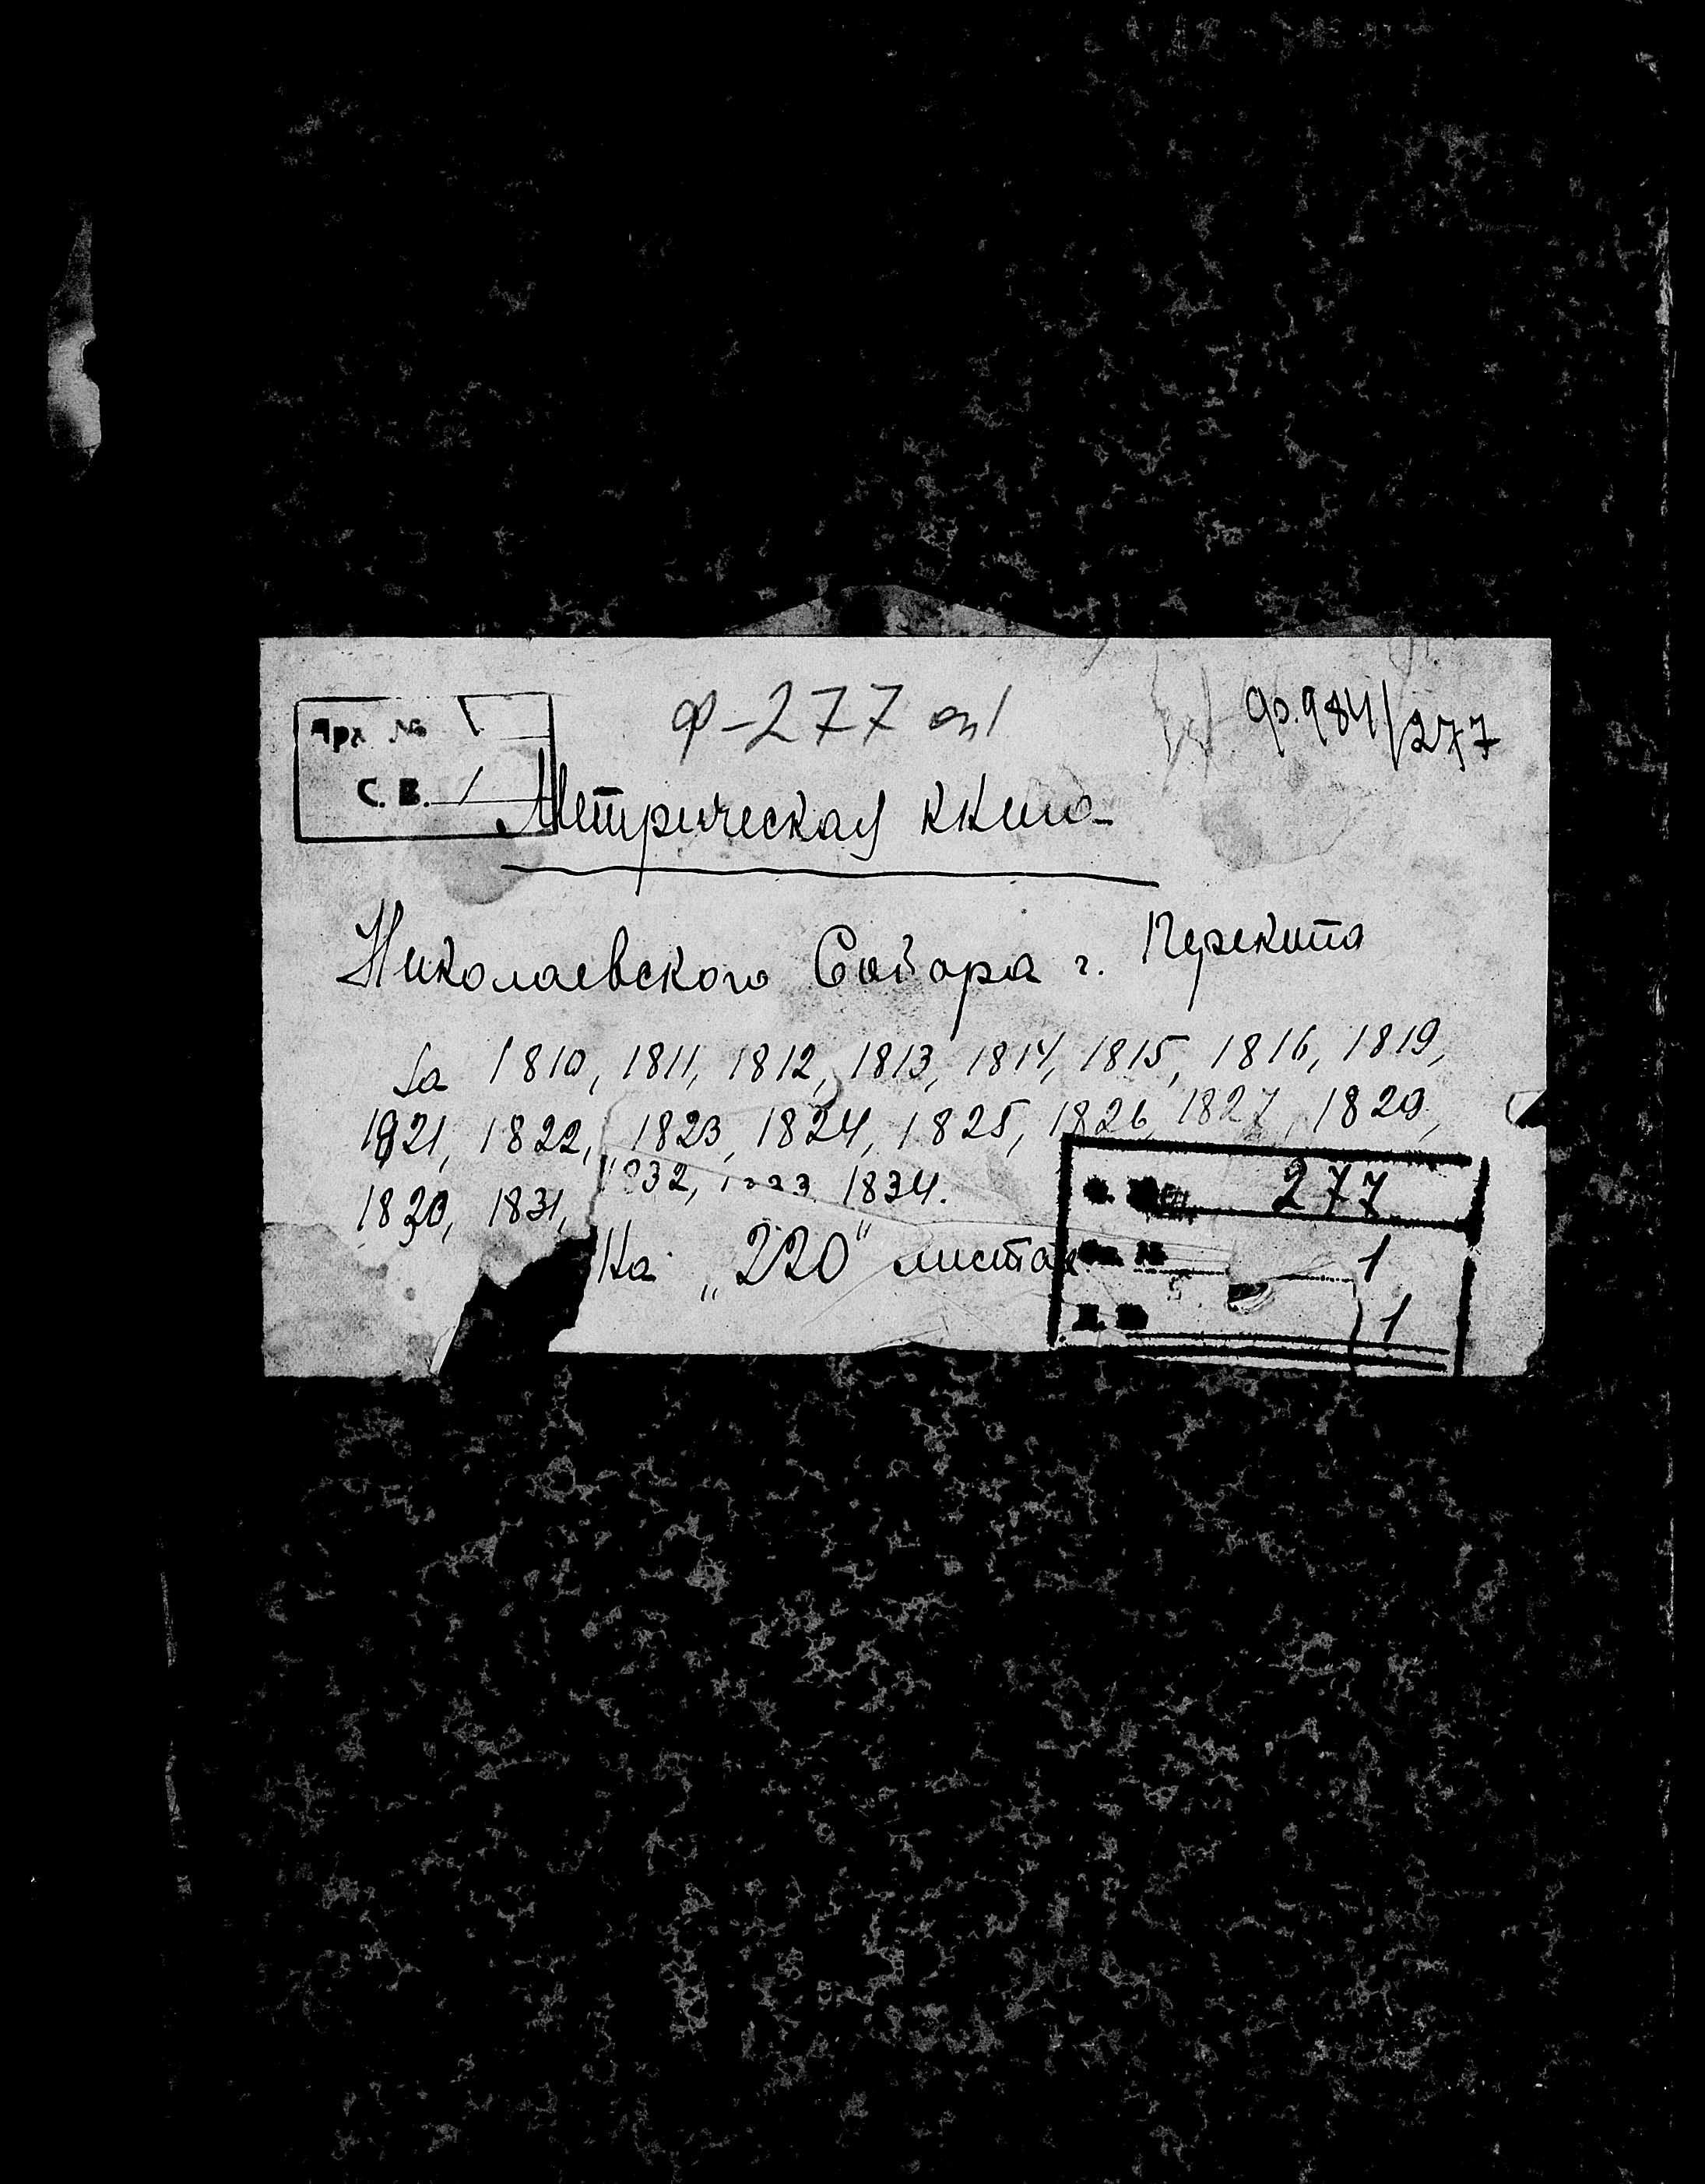 Арх №
С. В. 1
Ф-277 оп1
ф. 984/277
Метрическая книга
Николаевского Собора г. Перекопа
за 1810, 1811, 1812, 1813, 1814, 1815, 1816, 1819,
1821, 1822, 1823, 1824, 1825, 1826, 1827, 1829,
1830, 1831, 1832, 1833, 1834.
На „220“ листах
277
1
1